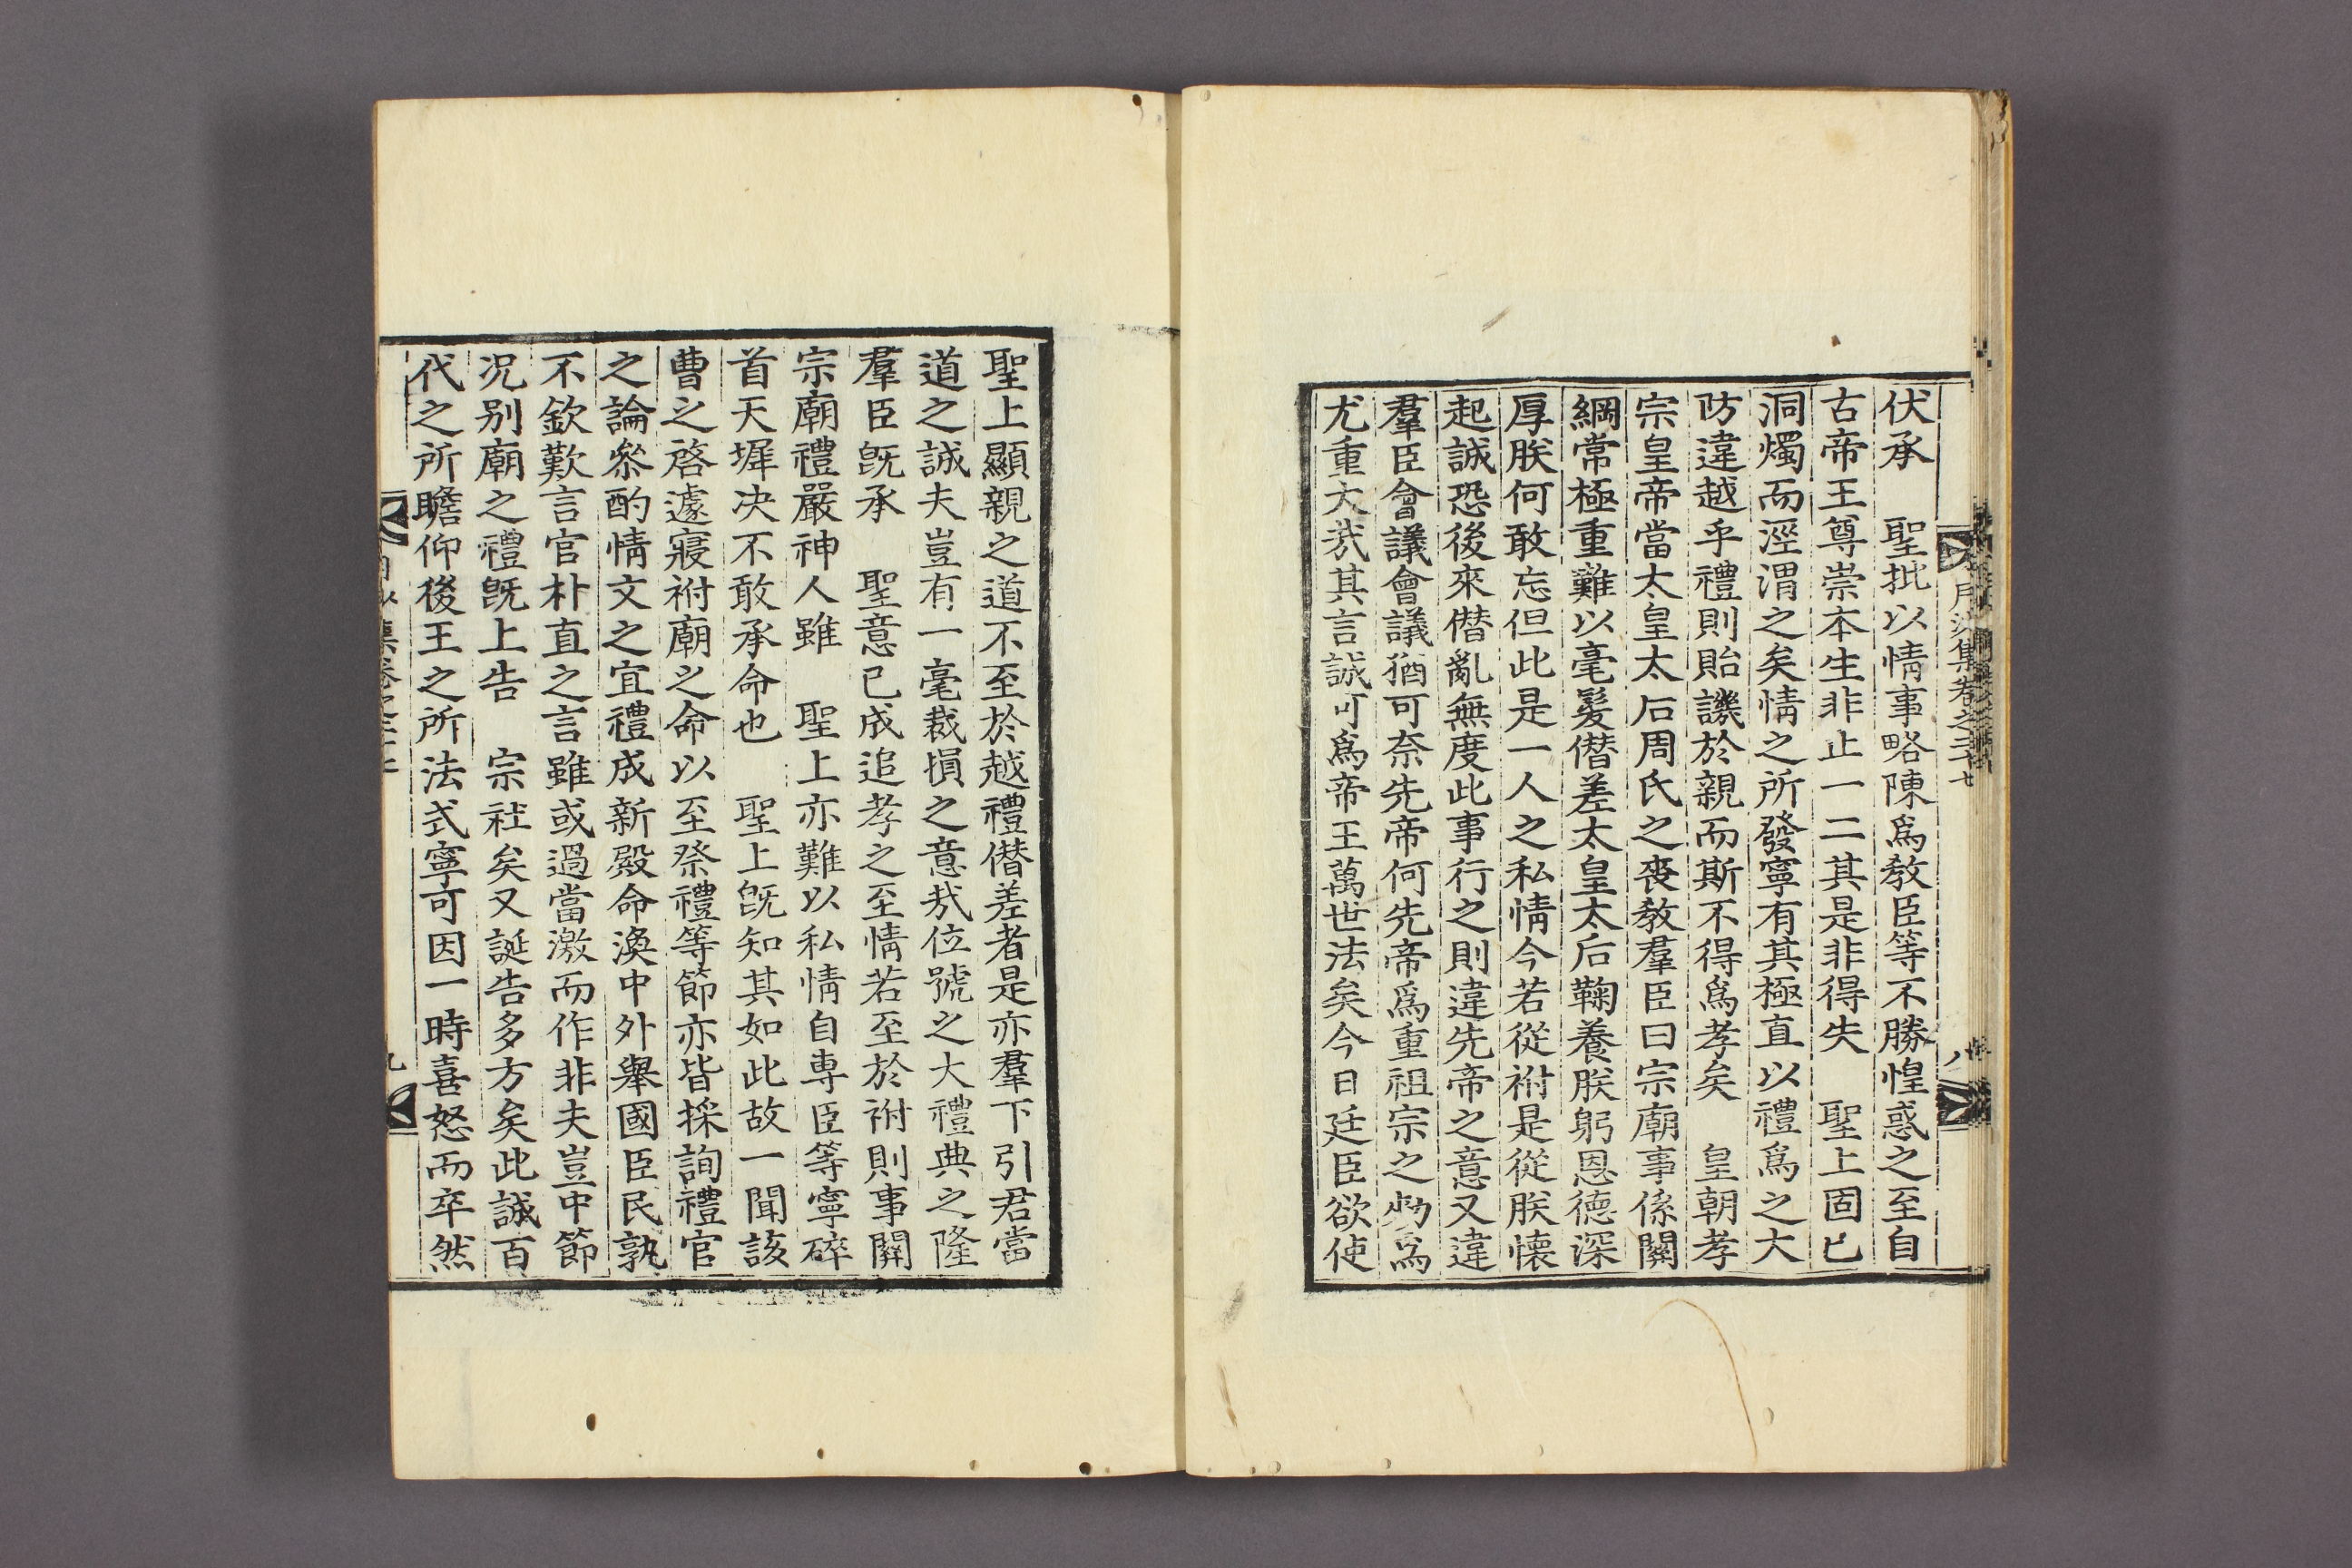 伏承　聖批以情事略陳爲敎臣等不勝惶惑之至自
古帝王尊崇本生非止一二其是非得失　聖上固已
洞燭而涇渭之矣情之所發寧有其極直以禮爲之大
防違越乎禮則貽譏於親而斯不得爲孝矣　皇朝孝
宗皇帝當太皇太后周氏之喪敎羣臣曰宗廟事係關
綱常極重難以毫髮僭差太皇太后鞠養朕躬恩德深
厚朕何敢忘但此是一人之私情今若從祔是從朕懷
起誠恐後來僭亂無度此事行之則違先帝之意又違
羣臣會議會議猶可奈先帝何先帝爲重祖宗之勑爲
尤重大㢤其言誠可爲帝王萬世法矣今日廷臣欲使
月沙集卷之三十七
八
聖上顯親之道不至於越禮僭差者是亦羣下引君當
道之誠夫豈有一毫裁損之意㢤位號之大禮典之隆
羣臣旣承　聖意已成追孝之至情若至於祔則事關
宗廟禮嚴神人雖　聖上亦難以私情自專臣等寧碎
首天墀决不敢承命也　聖上旣知其如此故一聞該
曹之啓遽寢祔廟之命以至祭禮等節亦皆採詢禮官
之論叅酌情文之宜禮成新殿命渙中外擧國臣民孰
不欽歎言官朴直之言雖或過當激而作非夫豈中節
况别廟之禮旣上告　宗社矣又誕告多方矣此誠百
代之所瞻仰後王之所法式寧可因一時喜怒而卒然
集卷之三十
九